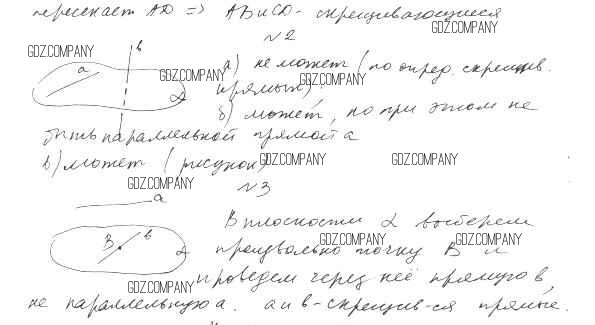 пересекает AD => AB и CD - скрещивающиеся
GDZ.COMPANY
N2
GDZ.COMPANY
в
а) не может (по опред. скрещив.
а
GDZ.COMPANY
GDZ.COMPANY
прямых)
α
б) может, но при этом не
быть параллельной прямой а
в) может (рисунок)
GDZ.COMPANY
GDZ.COMPANY
GDZ.COMPANY
N3
а
В плоскости α выберем
B в
α
произвольно точку B и
GDZ.COMPANY
GDZ.COMPANY
проведем через неё прямую в,
GDZ.COMPANY
не параллельную а. а и в - скрещив-ся прямые.